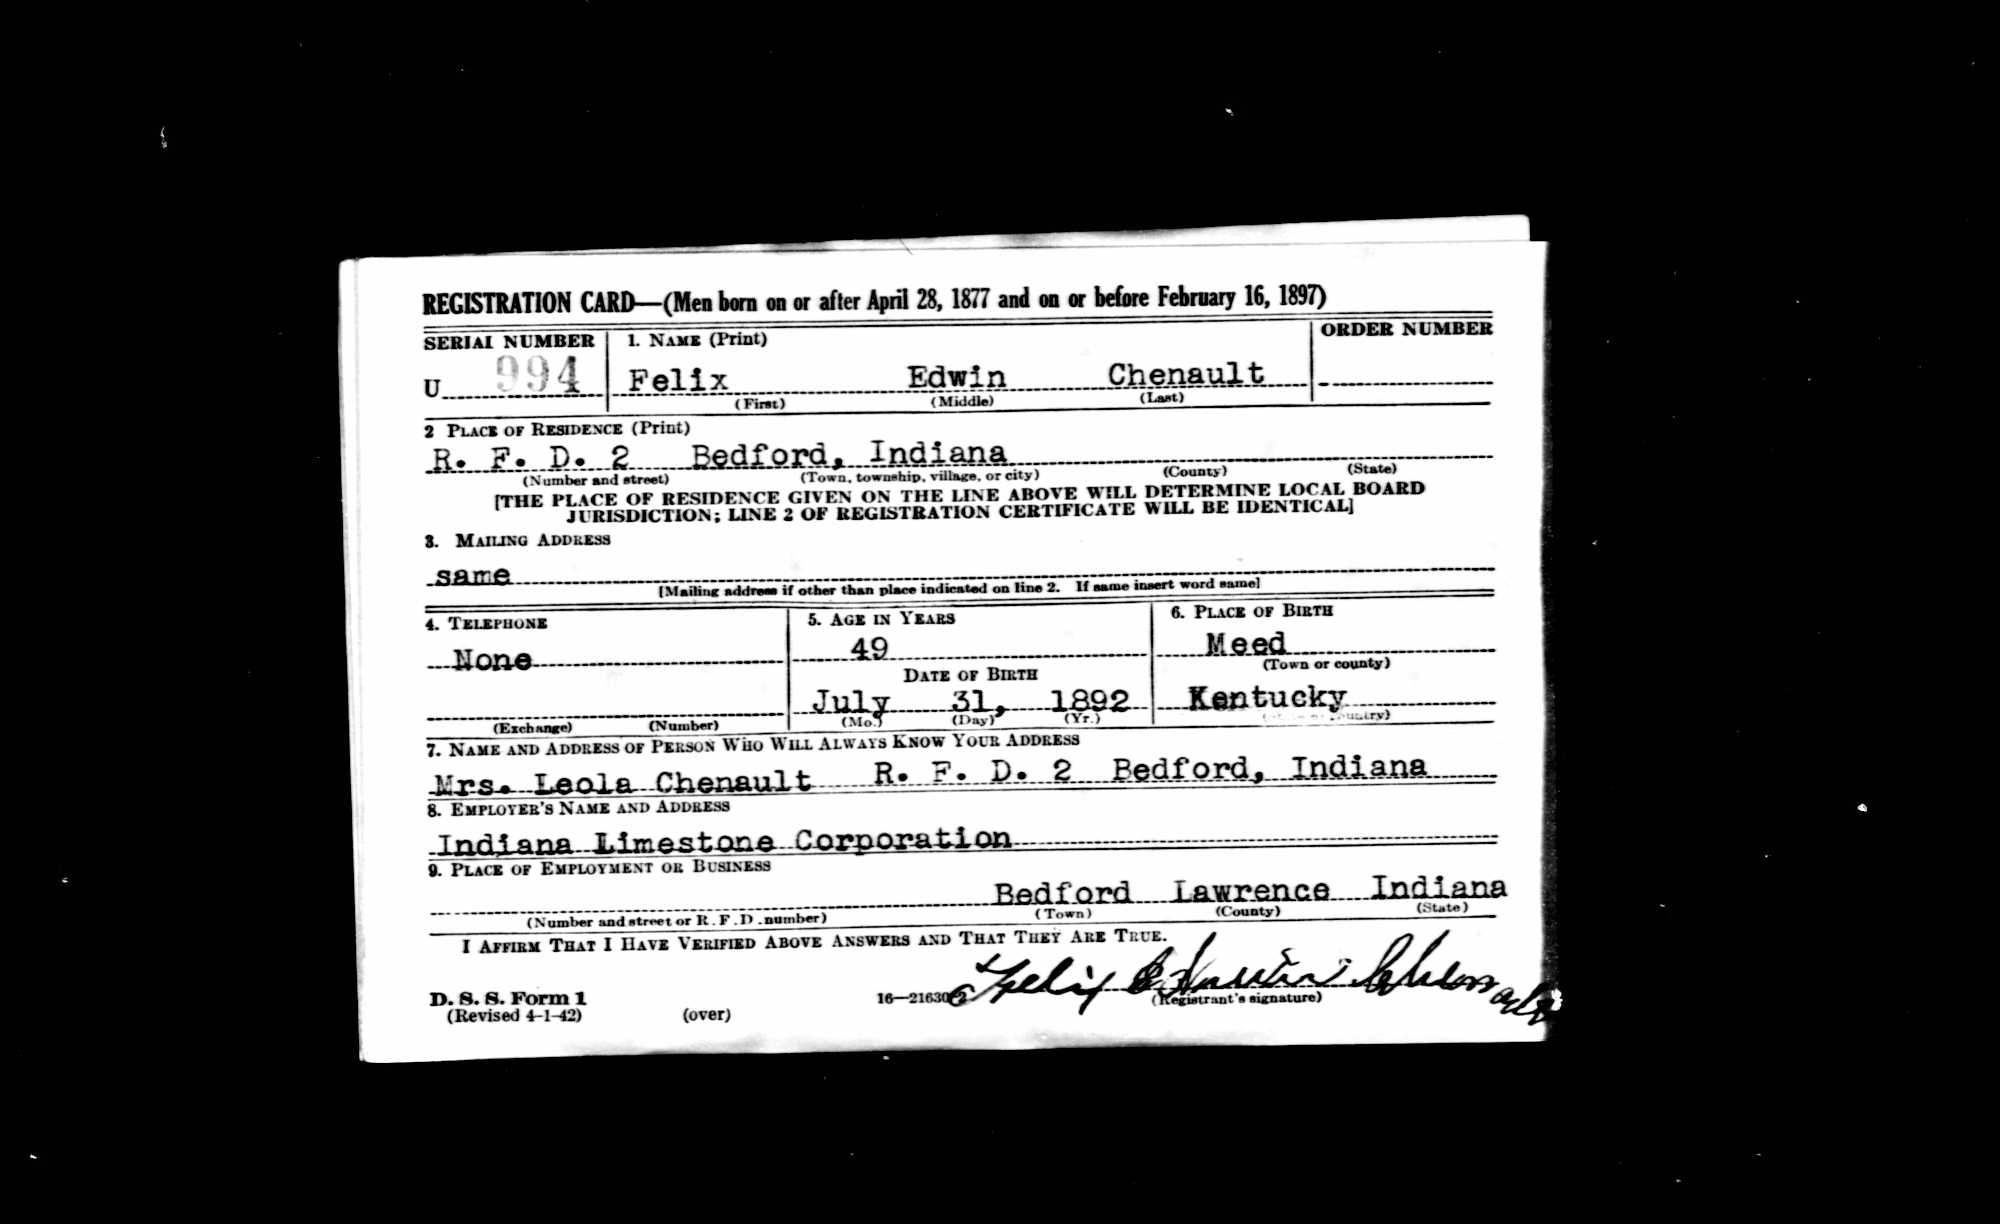 REGISTRATION CARD—(Men born on or after April 28, 1877 and on or before February 16, 1897)
SERIAL NUMBER
1. NAME (Print)
ORDER NUMBER
U 994
Felix Edwin Chenault
(First) (Middle) (Last)
2 PLACE OF RESIDENCE (Print)
R. F. D. 2 Bedford, Indiana
(Number and street) (Town, township, village, or city) (County) (State)
[THE PLACE OF RESIDENCE GIVEN ON THE LINE ABOVE WILL DETERMINE LOCAL BOARD
JURISDICTION; LINE 2 OF REGISTRATION CERTIFICATE WILL BE IDENTICAL]
3. MAILING ADDRESS
same
[Mailing address if other than place indicated on line 2. If same insert word same]
4. TELEPHONE
None
(Exchange) (Number)
5. AGE IN YEARS
49
DATE OF BIRTH
July 31, 1892
(Mo.) (Day) (Yr.)
6. PLACE OF BIRTH
Meed
(Town or county)
Kentucky
7. NAME AND ADDRESS OF PERSON WHO WILL ALWAYS KNOW YOUR ADDRESS
Mrs. Leola Chenault R. F. D. 2 Bedford, Indiana
8. EMPLOYER'S NAME AND ADDRESS
Indiana Limestone Corporation
9. PLACE OF EMPLOYMENT OR BUSINESS
Bedford Lawrence Indiana
(Number and street or R. F. D. number) (Town) (County) (State)
I AFFIRM THAT I HAVE VERIFIED ABOVE ANSWERS AND THAT THEY ARE TRUE.
Felix
D. S. S. Form 1
(Revised 4-1-42)
(over)
16—21630-2
(Registrant's signature)